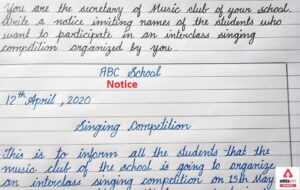 You are the secretary of Music club of your school.
Write a notice inviting names of the students who
want to participate in an interclass singing
competition organized by you.
ABC School
Notice
12th April, 2020
Singing Competition
This is to inform all the students that the
music club of the school is going to organize
an interclass singing competition on 15th May
adda247